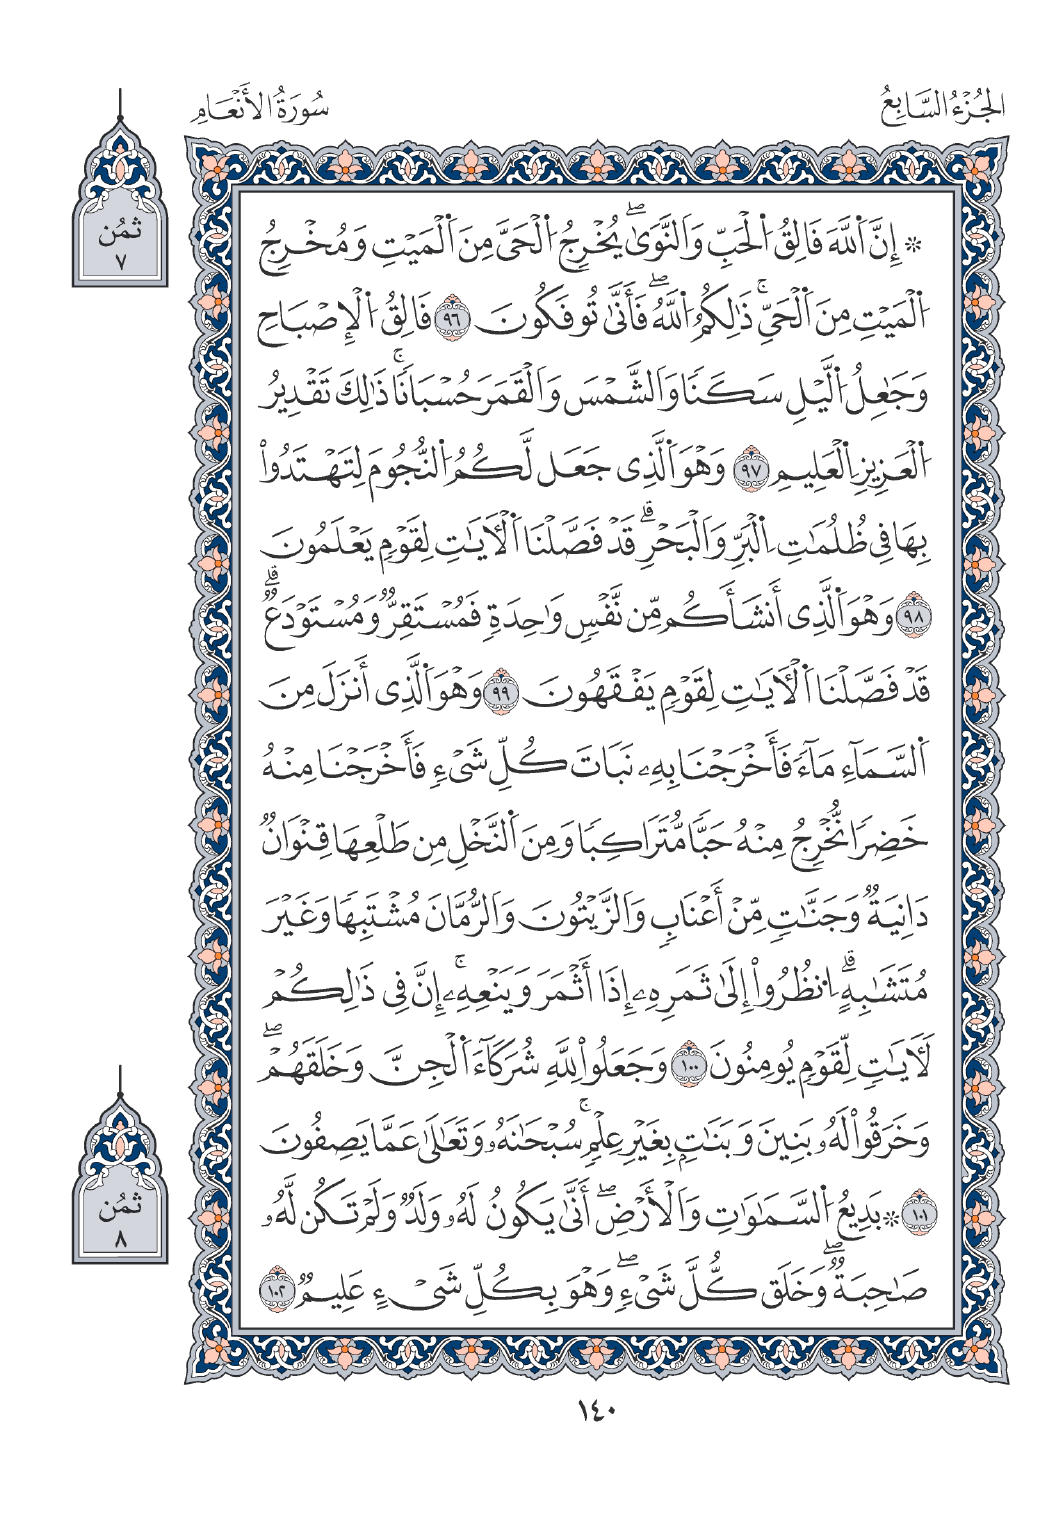 الجُزْءُ السَّابِعُ
سُورَةُ الأَنْعَامِ
ثُمُن
٧
* إِنَّ اَ۬للَّهَ فَالِقُ اُ۬لْحَبِّ وَالنَّوَىٰۖ يُخْرِجُ اُ۬لْحَيَّ مِنَ اَ۬لْمَيْتِ وَمُخْرِجُ
اُ۬لْمَيْتِ مِنَ اَ۬لْحَيِّۚ ذَٰلِكُمُ اُ۬للَّهُۖ فَأَنَّىٰ تُوفَكُونَ ٩٦ فَالِقُ اُ۬لْإِصْبَاحِ
وَجَٰعِلُ اُ۬لَّيْلِ سَكَنٗا وَالشَّمْسَ وَالْقَمَرَ حُسْبَانٗاۚ ذَٰلِكَ تَقْدِيرُ
اُ۬لْعَزِيزِ اِ۬لْعَلِيمِ ٩٧ وَهْوَ اَ۬لَّذِى جَعَل لَّكُمُ اُ۬لنُّجُومَ لِتَهْتَدُواْ
بِهَا فِى ظُلُمَٰتِ اِ۬لْبَرِّ وَالْبَحْرِۗ قَدْ فَصَّلْنَا اَ۬لْأٓيَٰتِ لِقَوْمٖ يَعْلَمُونَ
٩٨ وَهْوَ اَ۬لَّذِى أَنشَأَكُم مِّن نَّفْسٖ وَٰحِدَةٖ فَمُسْتَقِرّٞ وَمُسْتَوْدَعٞۗ
قَدْ فَصَّلْنَا اَ۬لْأٓيَٰتِ لِقَوْمٖ يَفْقَهُونَ ٩٩ وَهْوَ اَ۬لَّذِى أَنزَلَ مِنَ
اَ۬لسَّمَآءِ مَآءٗ فَأَخْرَجْنَا بِهِۦ نَبَاتَ كُلِّ شَىْءٖ فَأَخْرَجْنَا مِنْهُ
خَضِرٗا نُّخْرِجُ مِنْهُ حَبّٗا مُّتَرَاكِبٗا وَمِنَ اَ۬لنَّخْلِ مِن طَلْعِهَا قِنْوَانٞ
دَانِيَةٞ وَجَنَّٰتٖ مِّنْ أَعْنَابٖ وَالزَّيْتُونَ وَالرُّمَّانَ مُشْتَبِهٗا وَغَيْرَ
مُتَشَٰبِهٍۗ اِ۟نظُرُواْ إِلَىٰ ثَمَرِهِۦ إِذَا أَثْمَرَ وَيَنْعِهِۦۚ إِنَّ فِى ذَٰلِكُمْ
لَأٓيَٰتٖ لِّقَوْمٖ يُومِنُونَ ١٠٠ وَجَعَلُواْ لِلَّهِ شُرَكَآءَ اَ۬لْجِنَّ وَخَلَقَهُمْۖ
وَخَرَقُواْ لَهُۥ بَنِينَ وَبَنَٰتِۢ بِغَيْرِ عِلْمٖۚ سُبْحَٰنَهُۥ وَتَعَٰلَىٰ عَمَّا يَصِفُونَ
١٠١ * بَدِيعُ اُ۬لسَّمَٰوَٰتِ وَالْأَرْضِۖ أَنَّىٰ يَكُونُ لَهُۥ وَلَدٞ وَلَمْ تَكُن لَّهُۥ
صَٰحِبَةٞۖ وَخَلَق كُّلَّ شَىْءٖۖ وَهْوَ بِكُلِّ شَىْءٍ عَلِيمٞ ١٠٢
ثُمُن
٨
١٤٠